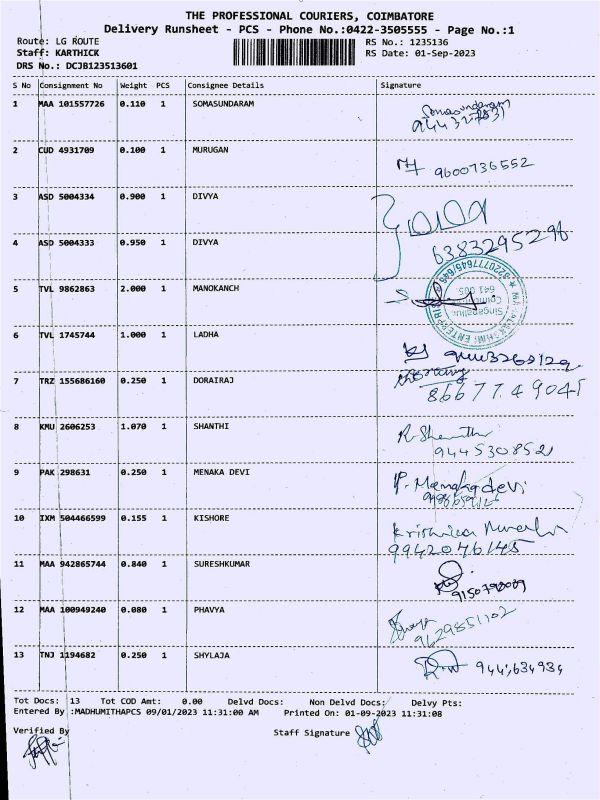 THE PROFESSIONAL COURIERS, COIMBATORE
Delivery Runsheet - PCS - Phone No.:0422-3505555 - Page No.:1
Route: LG ROUTE RS No.: 1235136
Staff: KARTHICK RS Date: 01-Sep-2023
DRS No.: DCJB123513601
S No Consignment No Weight PCS Consignee Details Signature
1 MAA 101557726 0.110 1 SOMASUNDARAM Somasundaram
2 CUD 4931709 0.100 1 MURUGAN 9600736552
3 ASD 5004334 0.900 1 DIVYA
4 ASD 5004333 0.950 1 DIVYA 6383295298
5 TVL 9862863 2.000 1 MANOKANCH
Singanallur
641 005
6 TVL 1745744 1.000 1 LADHA
7 TRZ 155686160 0.250 1 DORAIRAJ 8667749045
8 KMU 2606253 1.070 1 SHANTHI R. Shanthi
9445308521
9 PAK 298631 0.250 1 MENAKA DEVI P. Menaka devi
10 IXM 504466599 0.155 1 KISHORE
9942046145
11 MAA 942865744 0.840 1 SURESHKUMAR
12 MAA 100949240 0.080 1 PHAVYA
9629851102
13 TNJ 1194682 0.250 1 SHYLAJA
Tot Docs: 13 Tot COD Amt: 0.00 Delvd Docs: Non Delvd Docs: Delvy Pts:
Entered By :MADHUMITHAPCS 09/01/2023 11:31:00 AM Printed On: 01-09-2023 11:31:08
Verified By Staff Signature